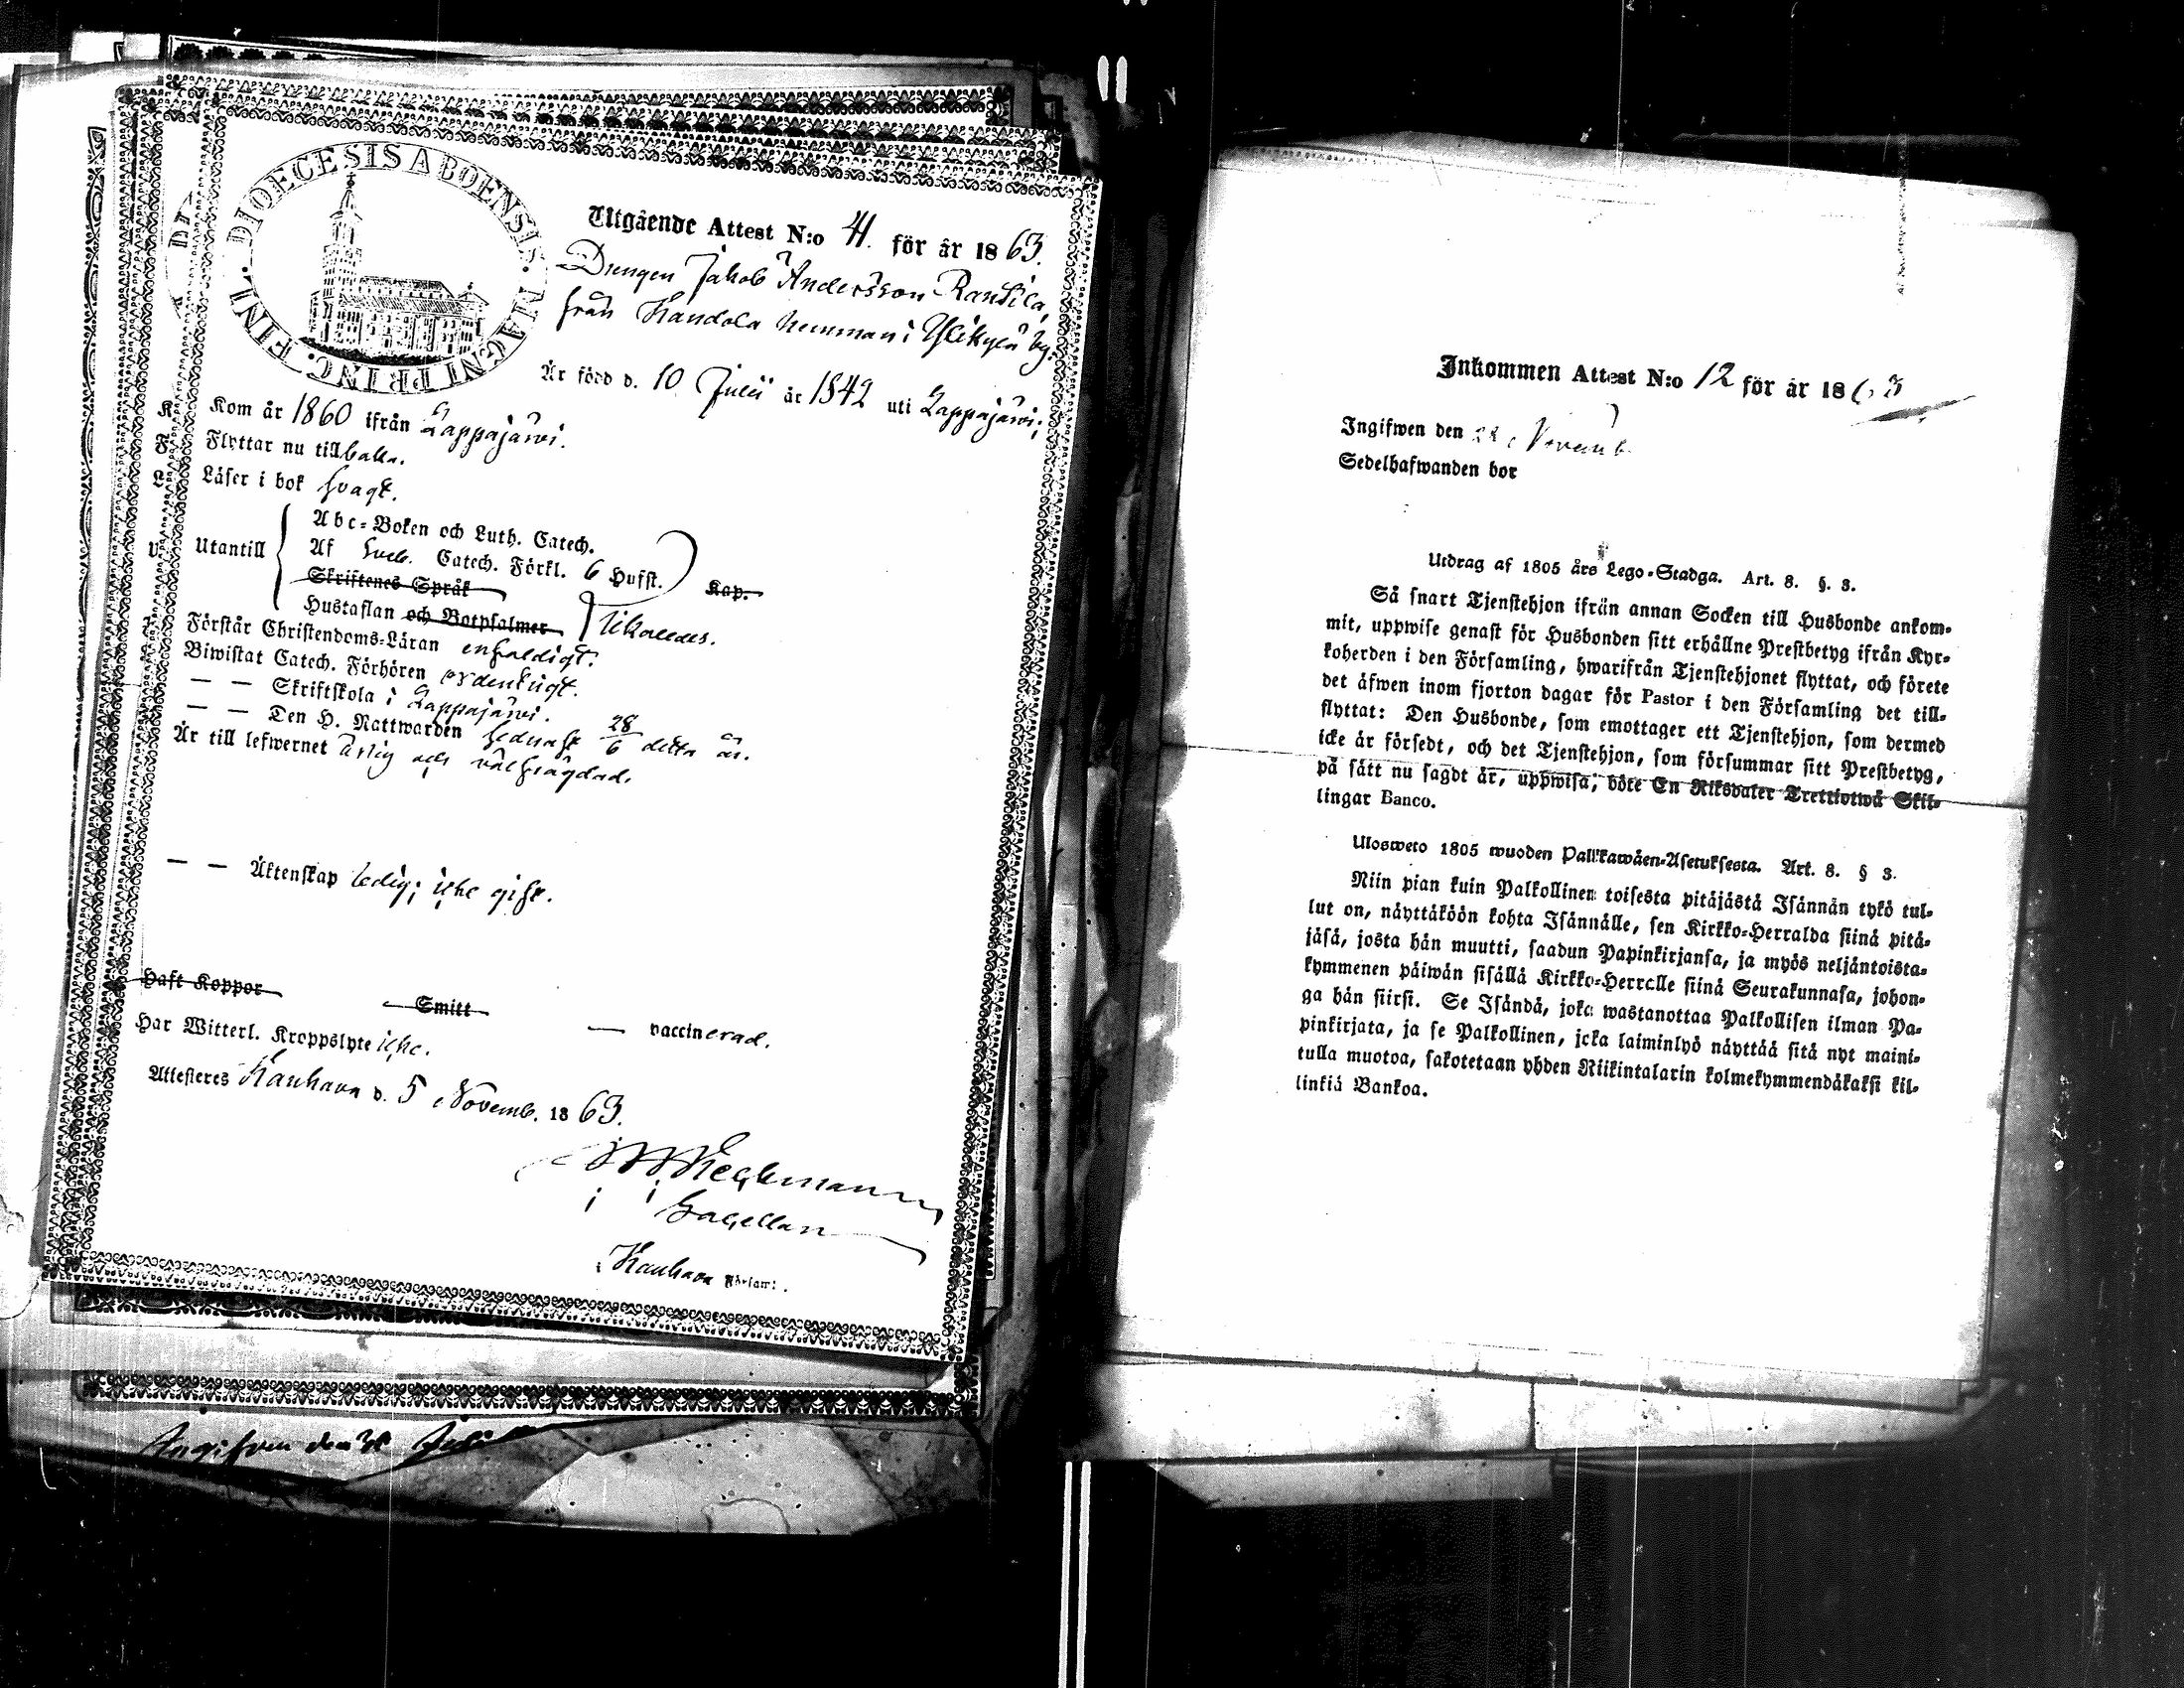 DIOECESIS ABOENSIS. MAGNI PRINC. FINL.
Utgående Attest N:o 41. för år 1863.
Drengen Jakob Andersson Rantila,
från Kandola hemman i Ylikylä by.
Är född d. 10 Julii år 1842 uti Lappajärvi;
Kom år 1860 ifrån Lappajärvi.
Flyttar nu till baka.
Läser i bok svagt.
Utantill
Abc-Boken och Luth. Catech.
Af Sveb. Catech. Förkl. 6 Hufst. Kap.
Skriftenes Språk
Hustaflan och Botpsalmer
likaledes.
Förstår Christendoms-Läran enfaldigt.
Biwistat Catech. Förhören ordentligt.
— — Skriftskola i Lappajärvi.
— — Den H. Nattwarden sednast 28/6 detta år.
Är till lefwernet ärlig och välfrägdad.
— — Äktenskap ledig; icke gift.
Haft Koppor
Smitt — vaccinerad.
Har Witterl. Kroppslyte icke.
Attesteres Kauhava d. 5 Novemb. 1863.
Capellan
i Kauhava Församl.
Ingifven den Juli
Inkommen Attest N:o 12 för år 1863
Ingifwen den 22 Novemb.
Sedelhafwanden bor
Utdrag af 1805 års Lego-Stadga. Art. 8. §. 3.
Så snart Tjenstehjon ifrån annan Socken till Husbonde ankom-
mit, uppwise genast för Husbonden sitt erhållne Prestbetyg ifrån Kyr-
koherden i den Församling, hwarifrån Tjenstehjonet flyttat, och förete
det äfwen inom fjorton dagar för Pastor i den Församling det till-
flyttat: Den Husbonde, som emottager ett Tjenstehjon, som dermed
icke är försedt, och det Tjenstehjon, som försummar sitt Prestbetyg,
på sätt nu sagdt är, uppwisa, böte En Riksdaler Trettiotwå Skil-
lingar Banco.
Ulosweto 1805 wuoden Palkkawäen-Asetuksesta. Art. 8. § 3.
Niin pian kuin Palkollinen toisesta pitäjästä Isännän tykö tul-
lut on, näyttäköön kohta Isännälle, sen Kirkko-Herralda siinä pitä-
jäsä, josta hän muutti, saadun Papinkirjansa, ja myös neljäntoista-
kymmenen päiwän sisällä Kirkko-Herralle siinä Seurakunnasa, johon-
ga hän siirsi. Se Isändä, joka wastanottaa Palkollisen ilman Pa-
pinkirjata, ja se Palkollinen, joka laiminlyö näyttää sitä nyt maini-
tulla muotoa, sakotetaan yhden Riikintalarin kolmekymmendäkaksi kil-
linkiä Bankoa.